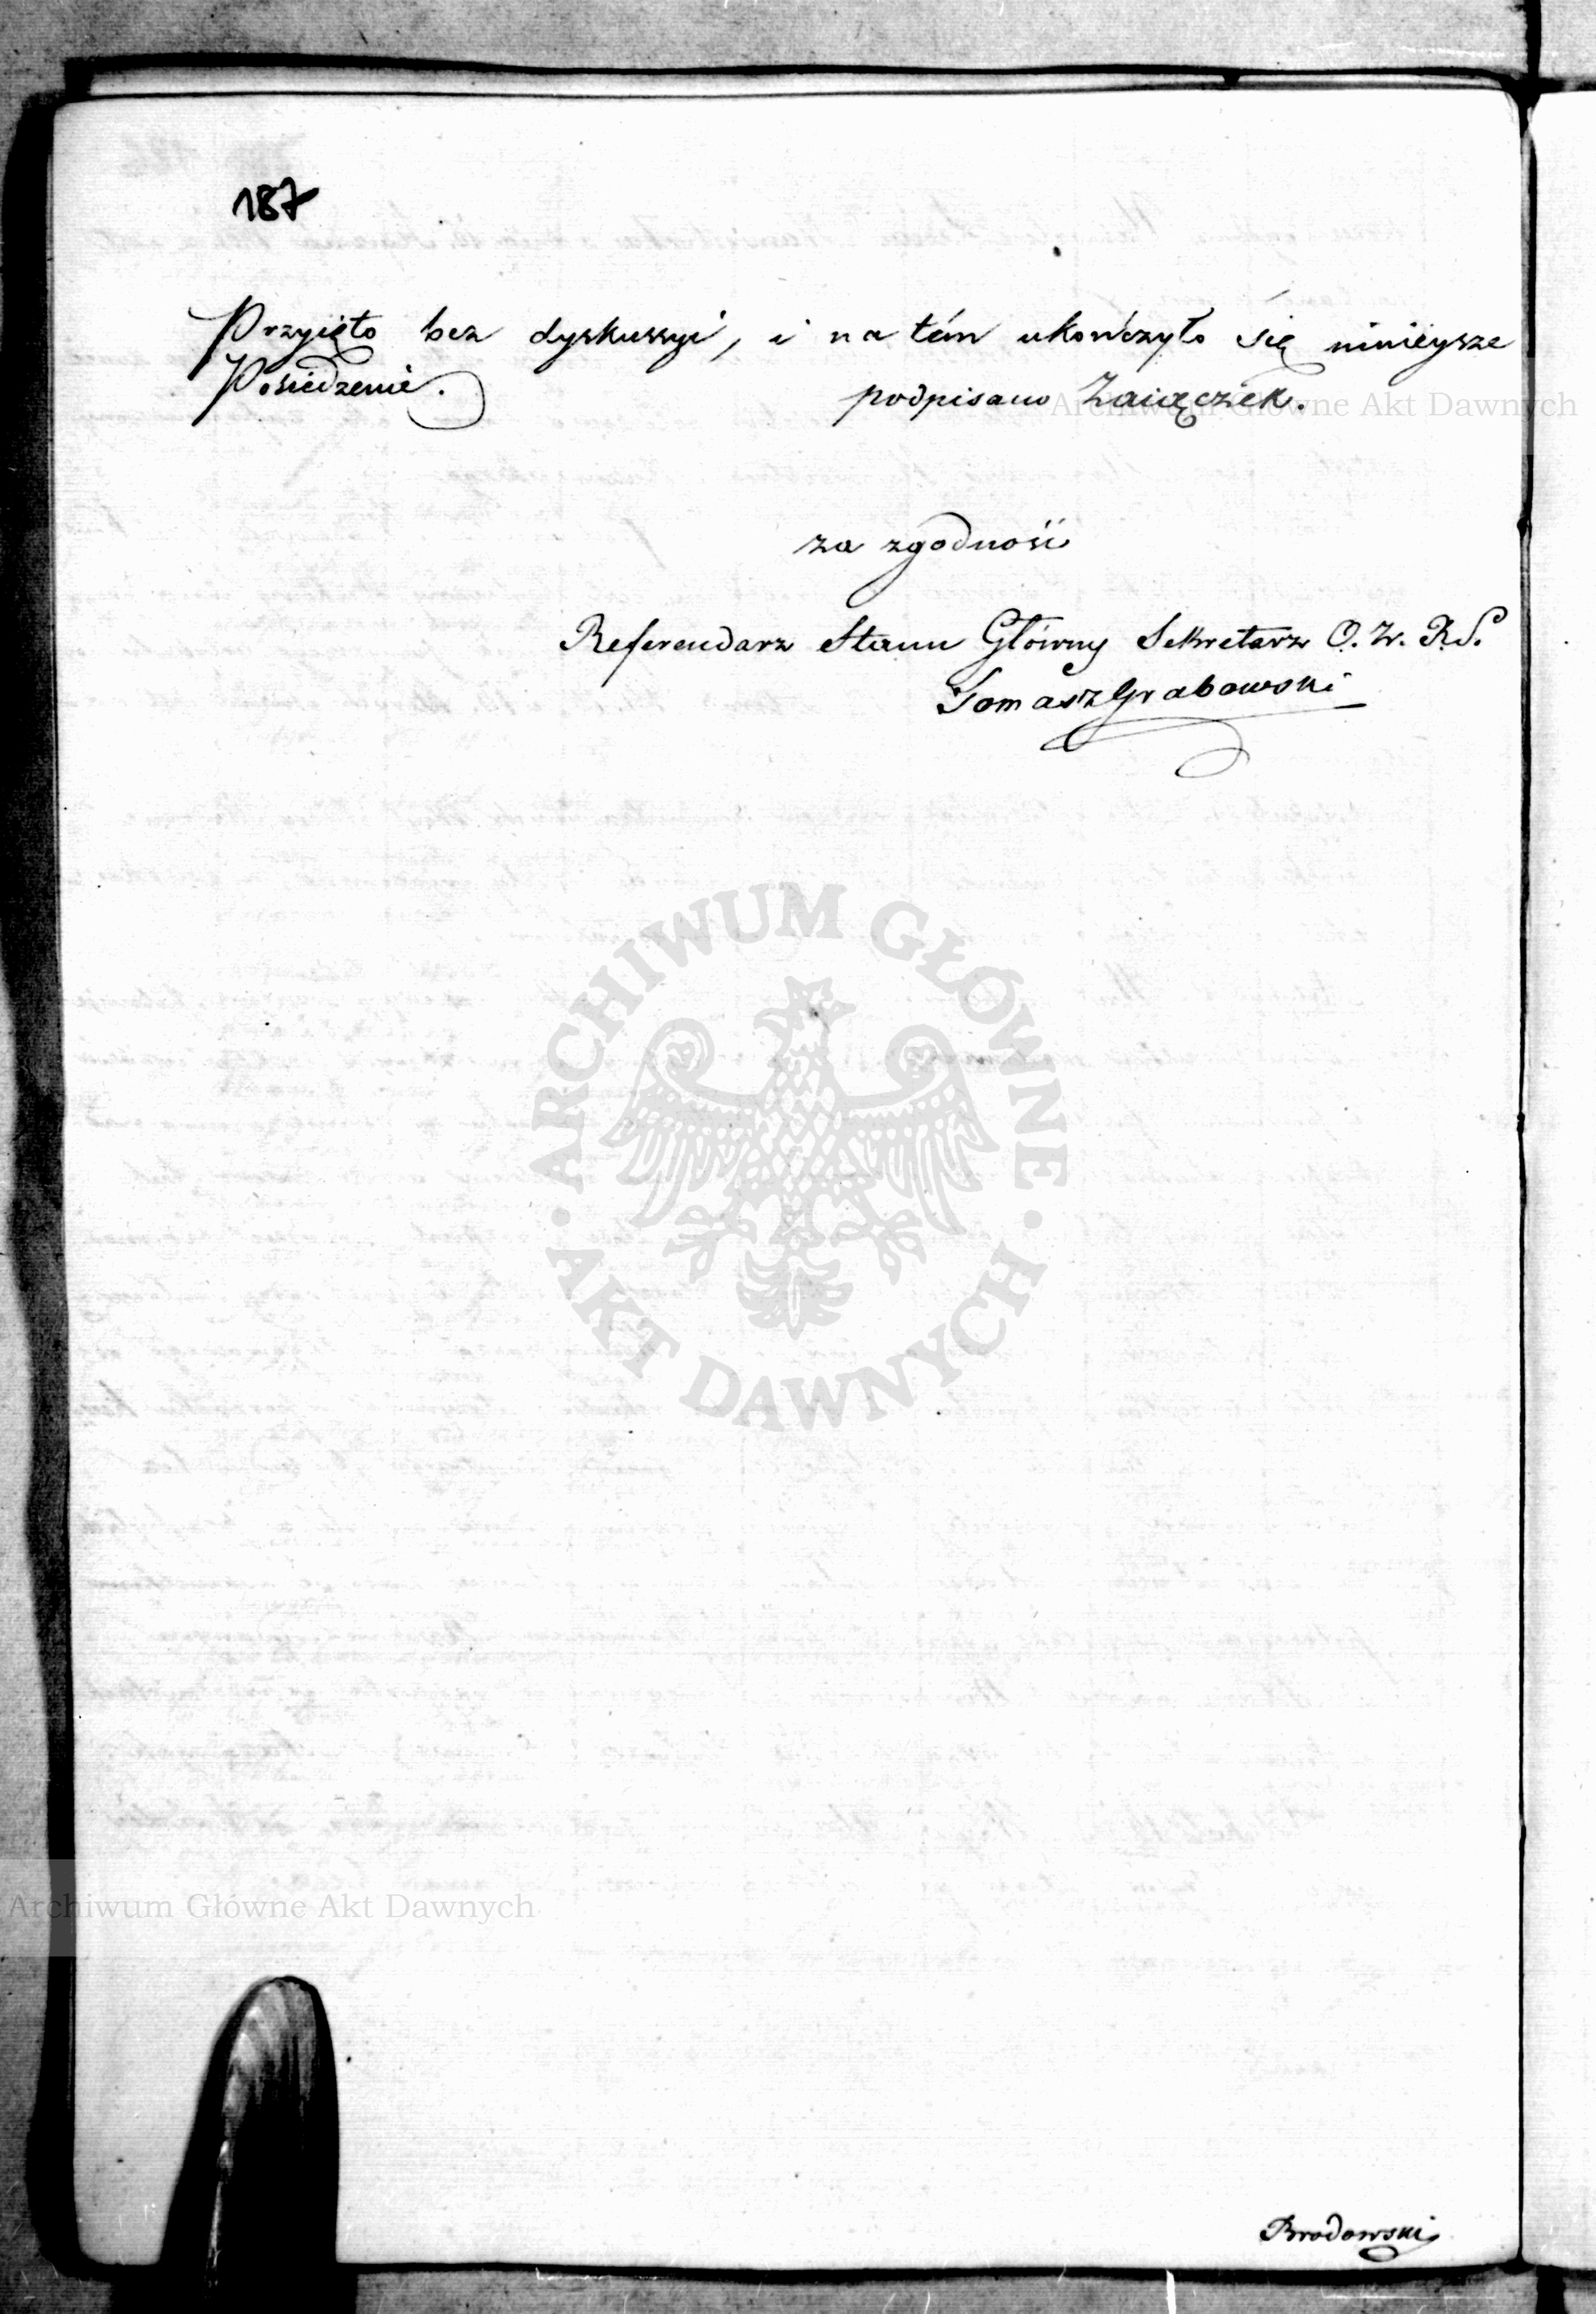 187
Przyięto bez dyskussyi, i na tém ukończyło się ninieysze
Posiedzenie.
podpisano Zaiączek.
Archiwum Główne Akt Dawnych
za zgodność
Referendarz Stanu Główny Sekretarz O. Zr. R. S.
Tomasz Grabowski
ARCHIWUM GŁÓWNE
AKT DAWNYCH
Archiwum Główne Akt Dawnych
Brodowski